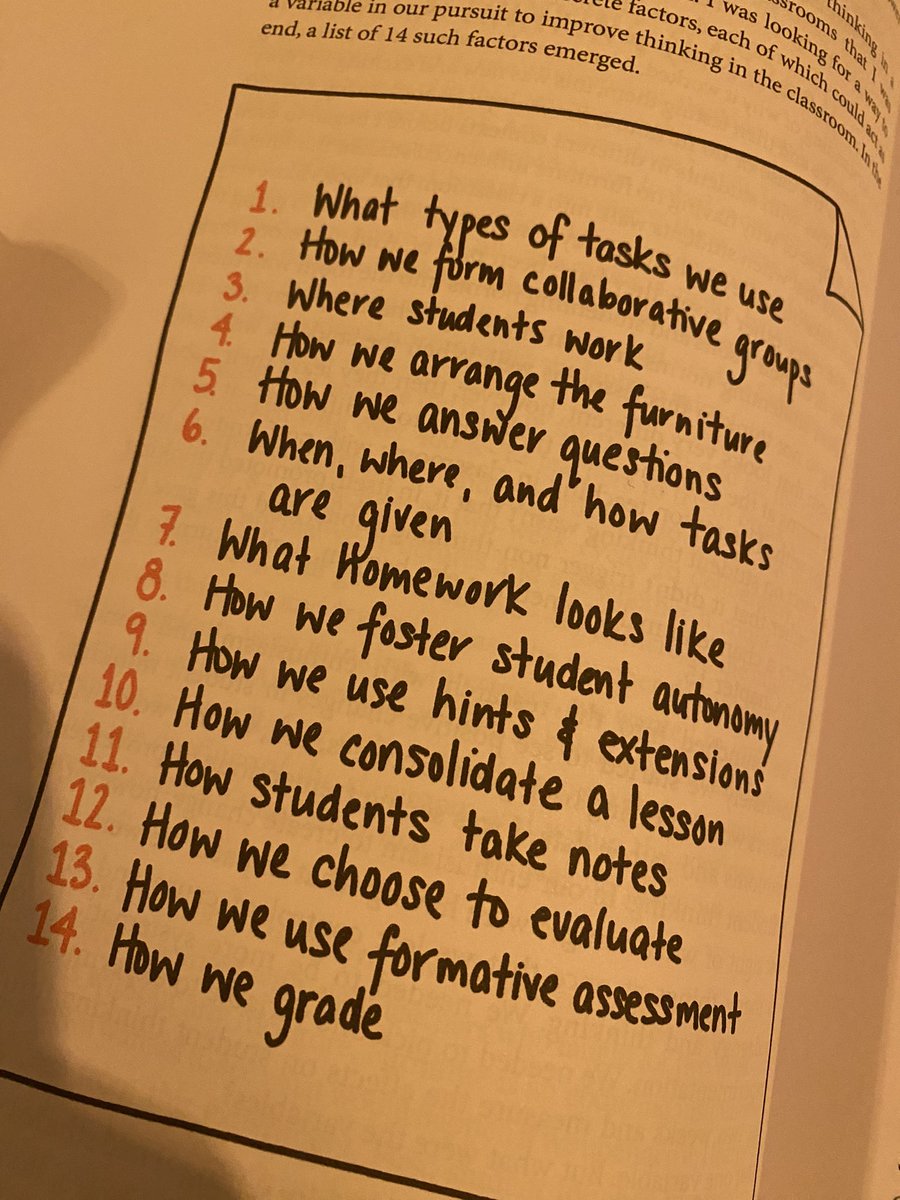 thinking in a
srooms that I was
I was looking for a way to
factors, each of which could act as
a variable in our pursuit to improve thinking in the classroom. In the
end, a list of 14 such factors emerged.
1. What types of tasks we use
2. How we form collaborative groups
3. Where students work
4. How we arrange the furniture
5. How we answer questions
6. When, where, and how tasks
are given
7. What homework looks like
8. How we foster student autonomy
9. How we use hints & extensions
10. How we consolidate a lesson
11. How students take notes
12. How we choose to evaluate
13. How we use formative assessment
14. How we grade